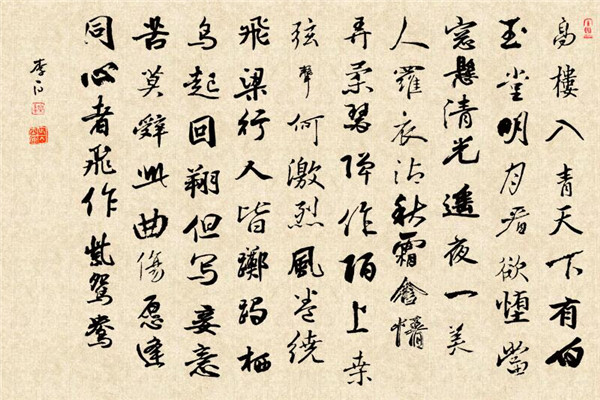 高樓入青天下有白
玉堂明月看欲墮當
窓懸清光遥夜一美
人羅衣沾秋霜含情
弄柔瑟弹作陌上桑
弦聲何激烈風卷繞
飛梁行人皆躑躅栖
鸟起回翔但写妾意
苦莫辭此曲傷愿逢
同心者飛作紫鴛鴦
李白